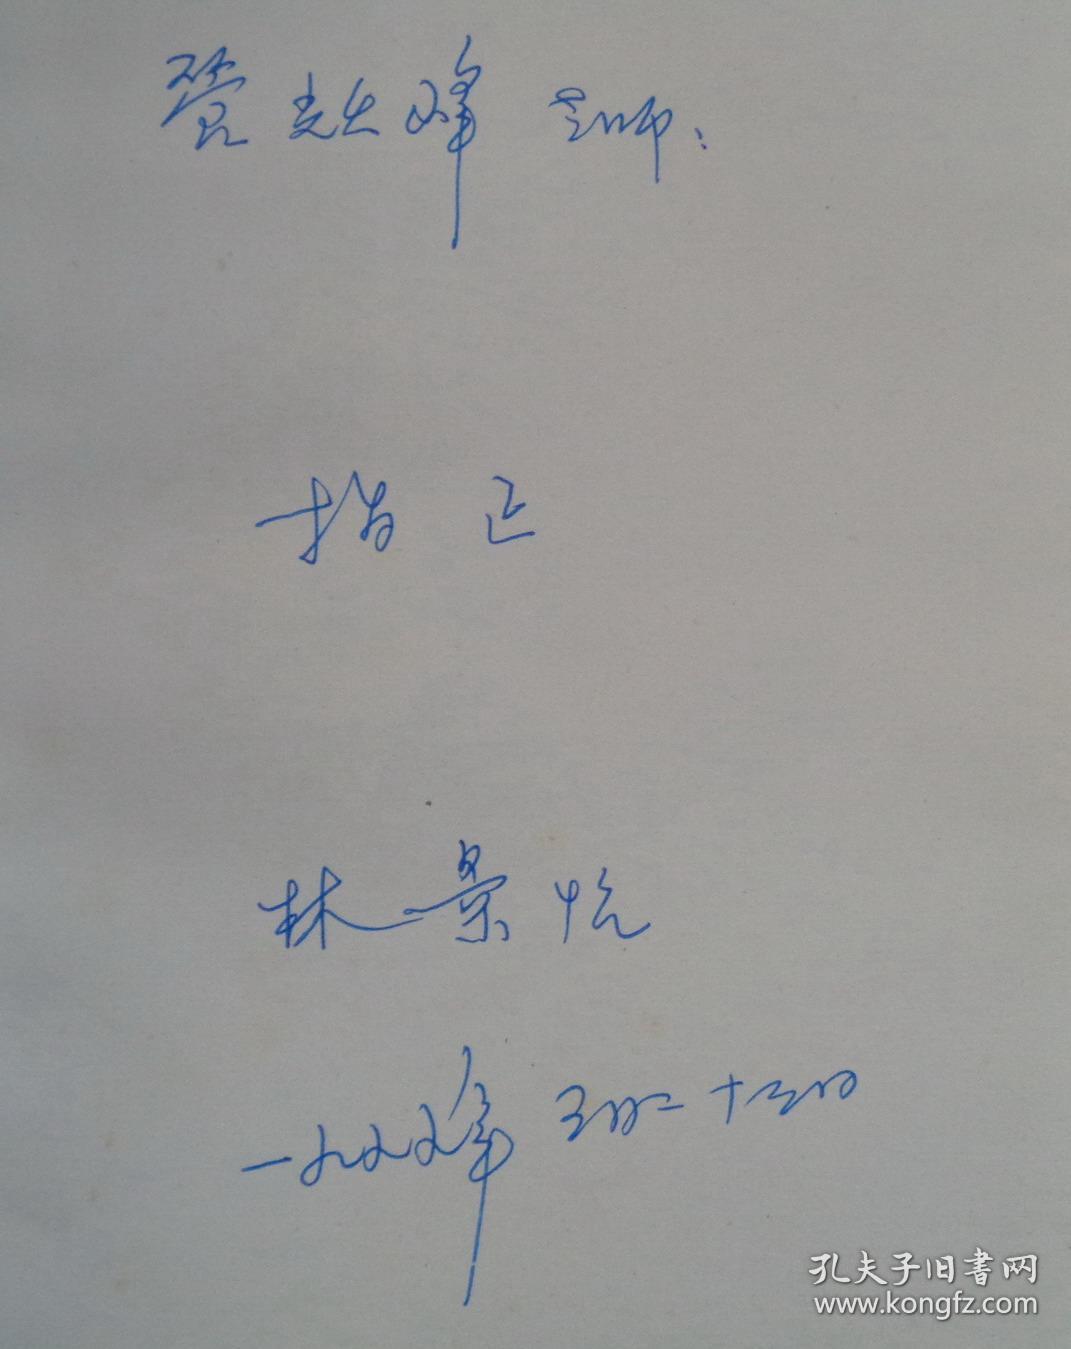 峰 老师：
指正
林景悦
一九 年 三月二十三日
孔夫子旧书网
www.kongfz.com